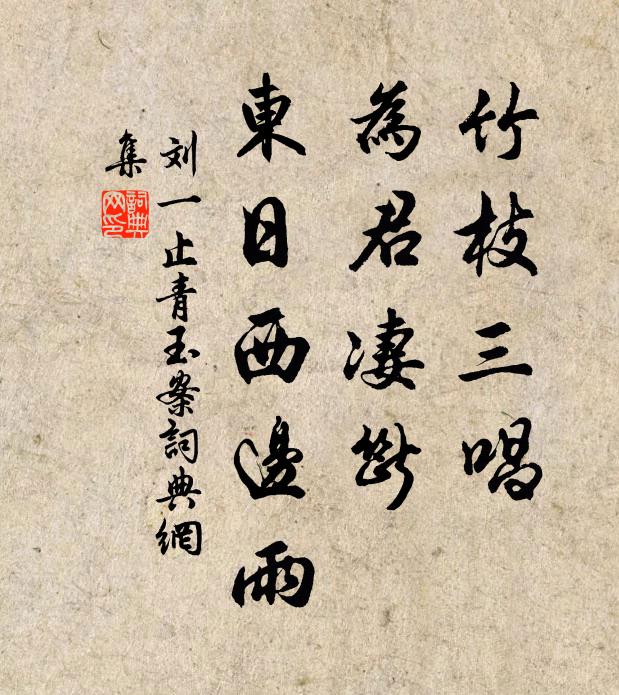 竹枝三唱
為君凄斷
東日西邊雨
刘一止青玉案詞典網
集
詞典網印